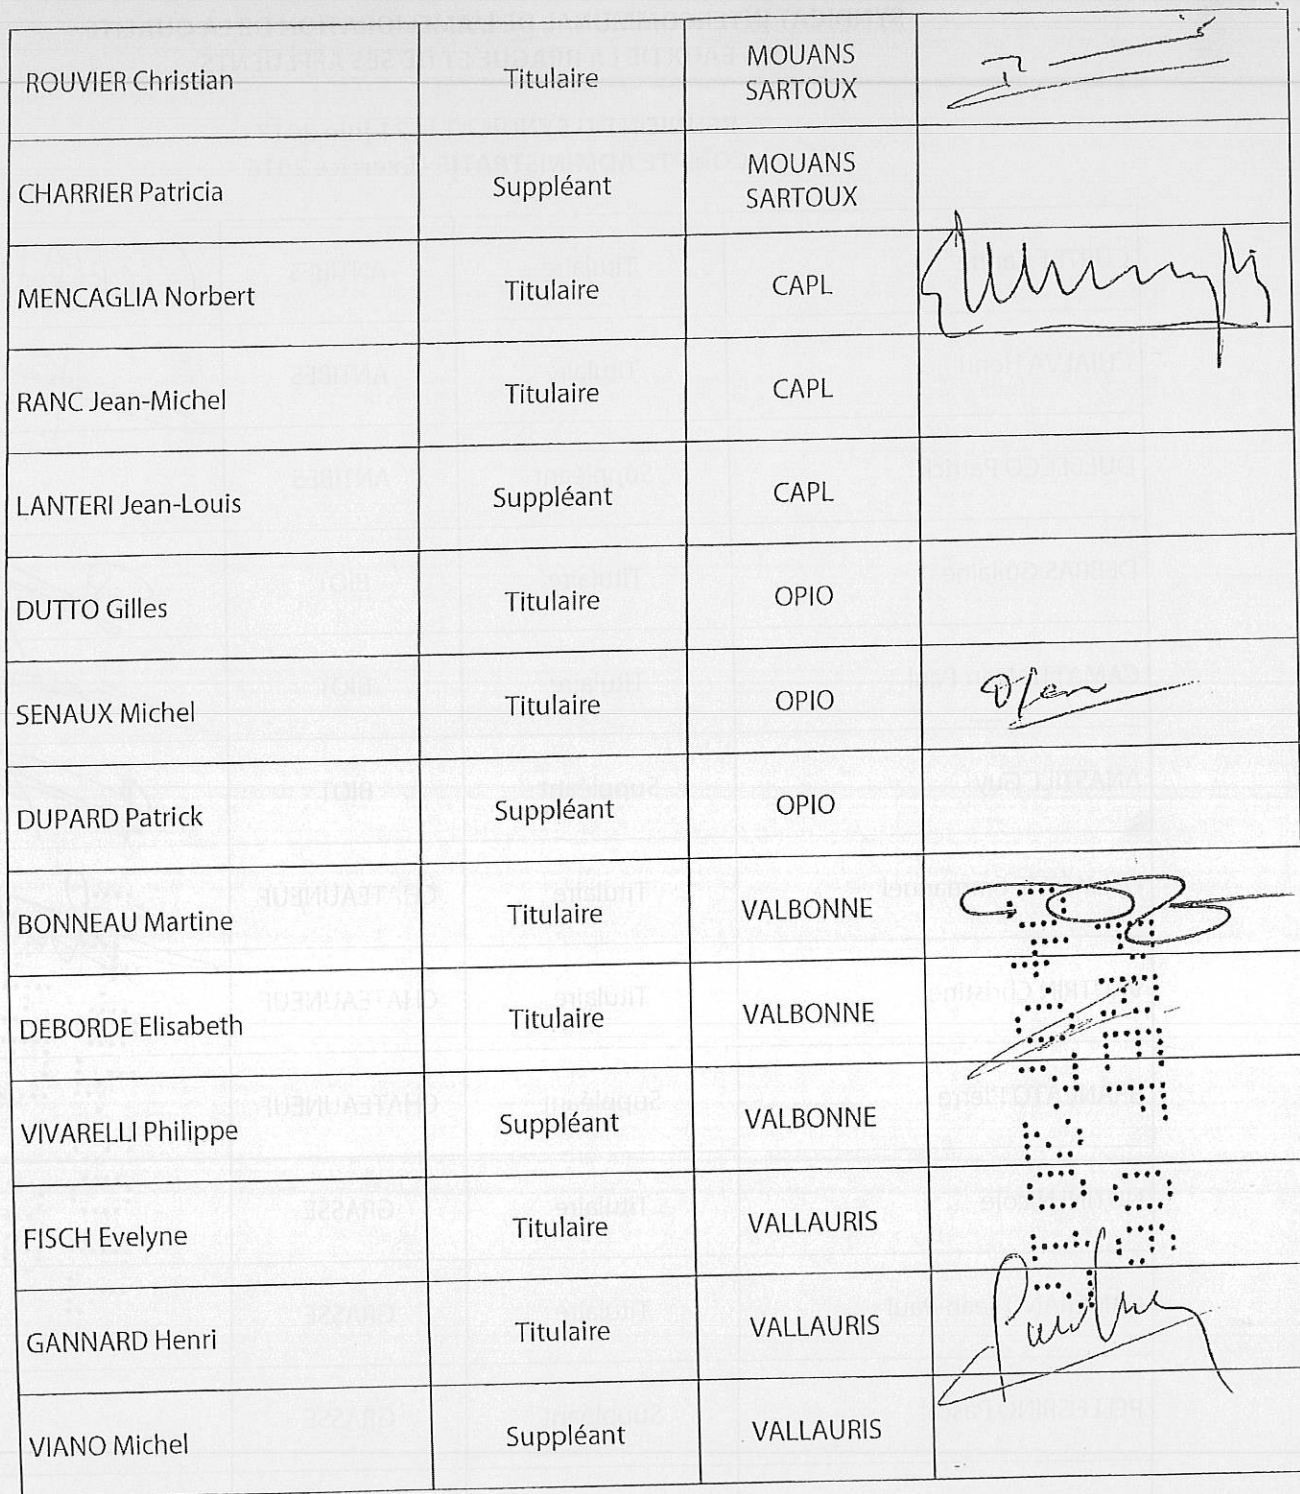 ROUVIER Christian Titulaire MOUANS SARTOUX
CHARRIER Patricia Suppléant MOUANS SARTOUX
MENCAGLIA Norbert Titulaire CAPL
RANC Jean-Michel Titulaire CAPL
LANTERI Jean-Louis Suppléant CAPL
DUTTO Gilles Titulaire OPIO
SENAUX Michel Titulaire OPIO
DUPARD Patrick Suppléant OPIO
BONNEAU Martine Titulaire VALBONNE
DEBORDE Elisabeth Titulaire VALBONNE
VIVARELLI Philippe Suppléant VALBONNE
FISCH Evelyne Titulaire VALLAURIS
GANNARD Henri Titulaire VALLAURIS
VIANO Michel Suppléant VALLAURIS